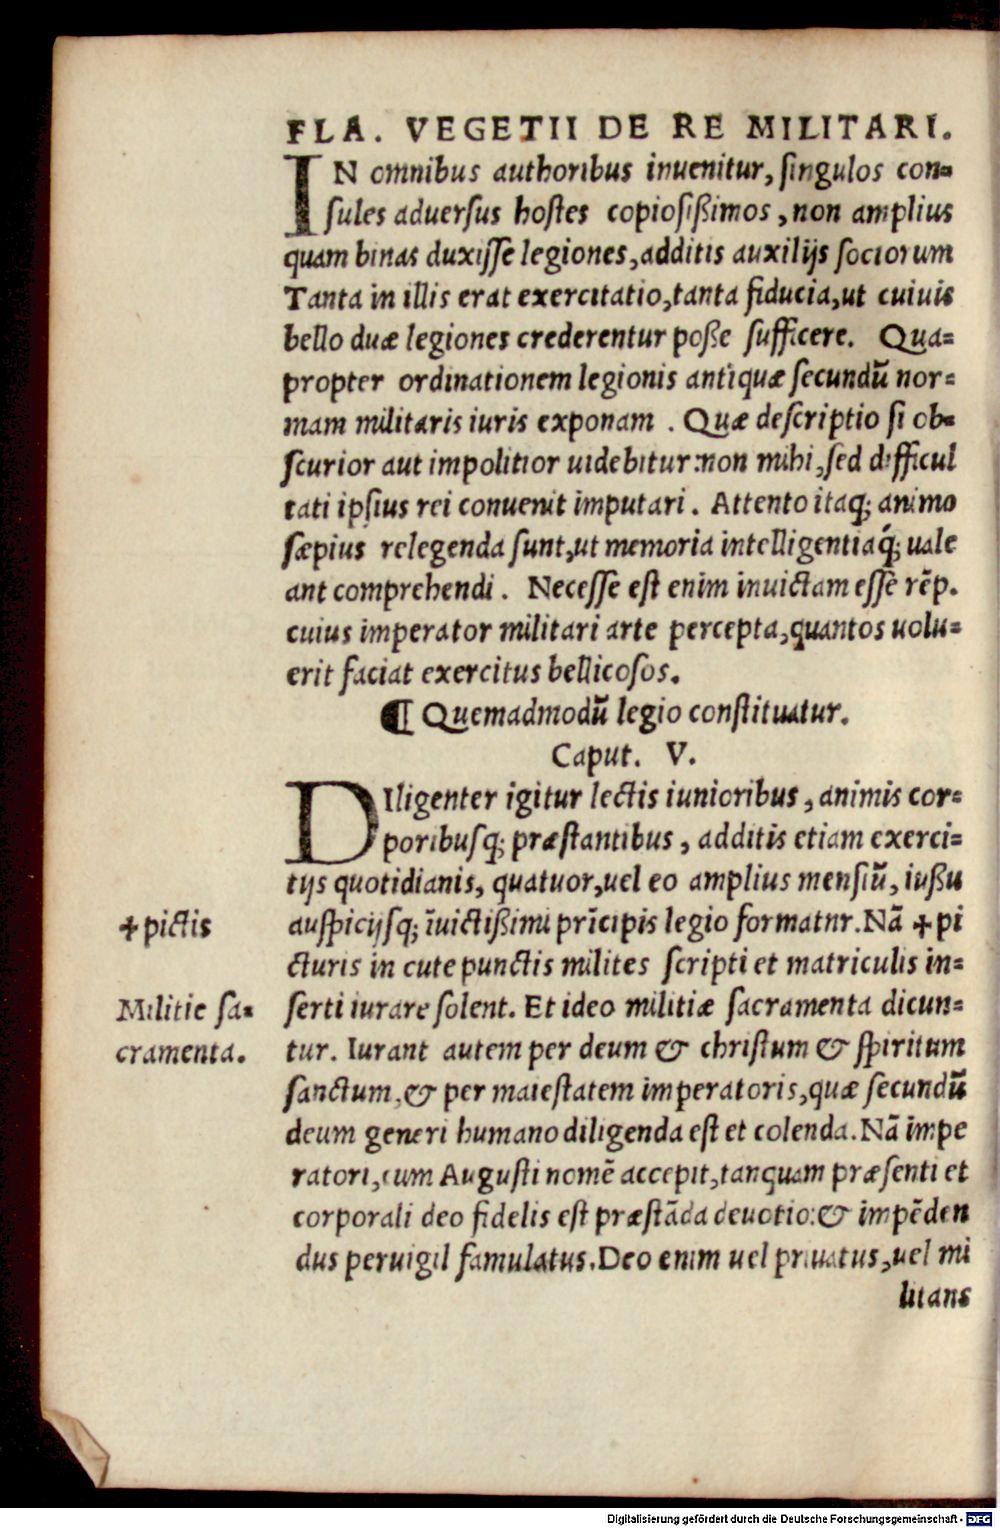 FLA. VEGETII DE RE MILITARI.
IN omnibus authoribus inuenitur, ſingulos con-
ſules aduerſus hoſtes copioſißimos, non amplius
quam binas duxiſſe legiones, additis auxilijs ſociorum
Tanta in illis erat exercitatio, tanta fiducia, ut cuiuis
bello duæ legiones crederentur poße ſufficere. Qua-
propter ordinationem legionis antiquæ ſecundũ nor-
mam militaris iuris exponam. Quæ deſcriptio ſi ob-
ſcurior aut impolitior uidebitur: non mihi, ſed difficul
tati ipſius rei conuenit imputari. Attento itaq; animo
ſæpius relegenda ſunt, ut memoria intelligentiaq́; uale
ant comprehendi. Neceſſe eſt enim inuictam eſſe rẽp.
cuius imperator militari arte percepta, quantos uolu-
erit faciat exercitus bellicoſos.
¶ Quemadmodũ legio conſtituatur.
Caput. V.
DIligenter igitur lectis iunioribus, animis cor-
poribuſq; præſtantibus, additis etiam exerci-
tijs quotidianis, quatuor, uel eo amplius menſiũ, iußu
auſpicijſq; ĩuictißimi prĩcipis legio formatnr. Nã ✢ pi
cturis in cute punctis milites ſcripti et matriculis in-
ſerti iurare ſolent. Et ideo militiæ ſacramenta dicun-
tur. Iurant autem per deum & chriſtum & ſpiritum
ſanctum, & per maieſtatem imperatoris, quæ ſecundũ
deum generi humano diligenda eſt et colenda. Nã impe
ratori, cum Auguſti nomẽ accepit, tanquam præſenti et
corporali deo fidelis eſt præſtãda deuotio: & impẽden
dus peruigil famulatus. Deo enim uel priuatus, uel mi
litans
✢ pictis
Militie ſa-
cramenta.
Digitalisierung gefördert durch die Deutsche Forschungsgemeinschaft - DFG